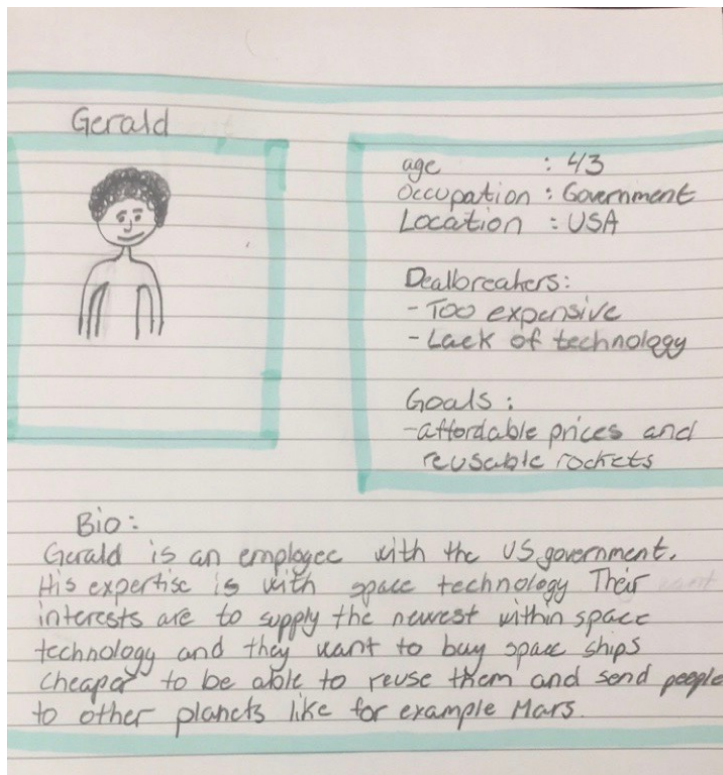 Gerald
age : 43
Occupation : Government
Location : USA
Dealbreakers:
- Too expensive
- Lack of technology
Goals :
-affordable prices and
reusable rockets
Bio:
Gerald is an employee with the US government.
His expertise is with space technology Their want
interests are to supply the newest within space
technology and they want to buy space ships
cheaper to be able to reuse them and send people
to other planets like for example Mars.